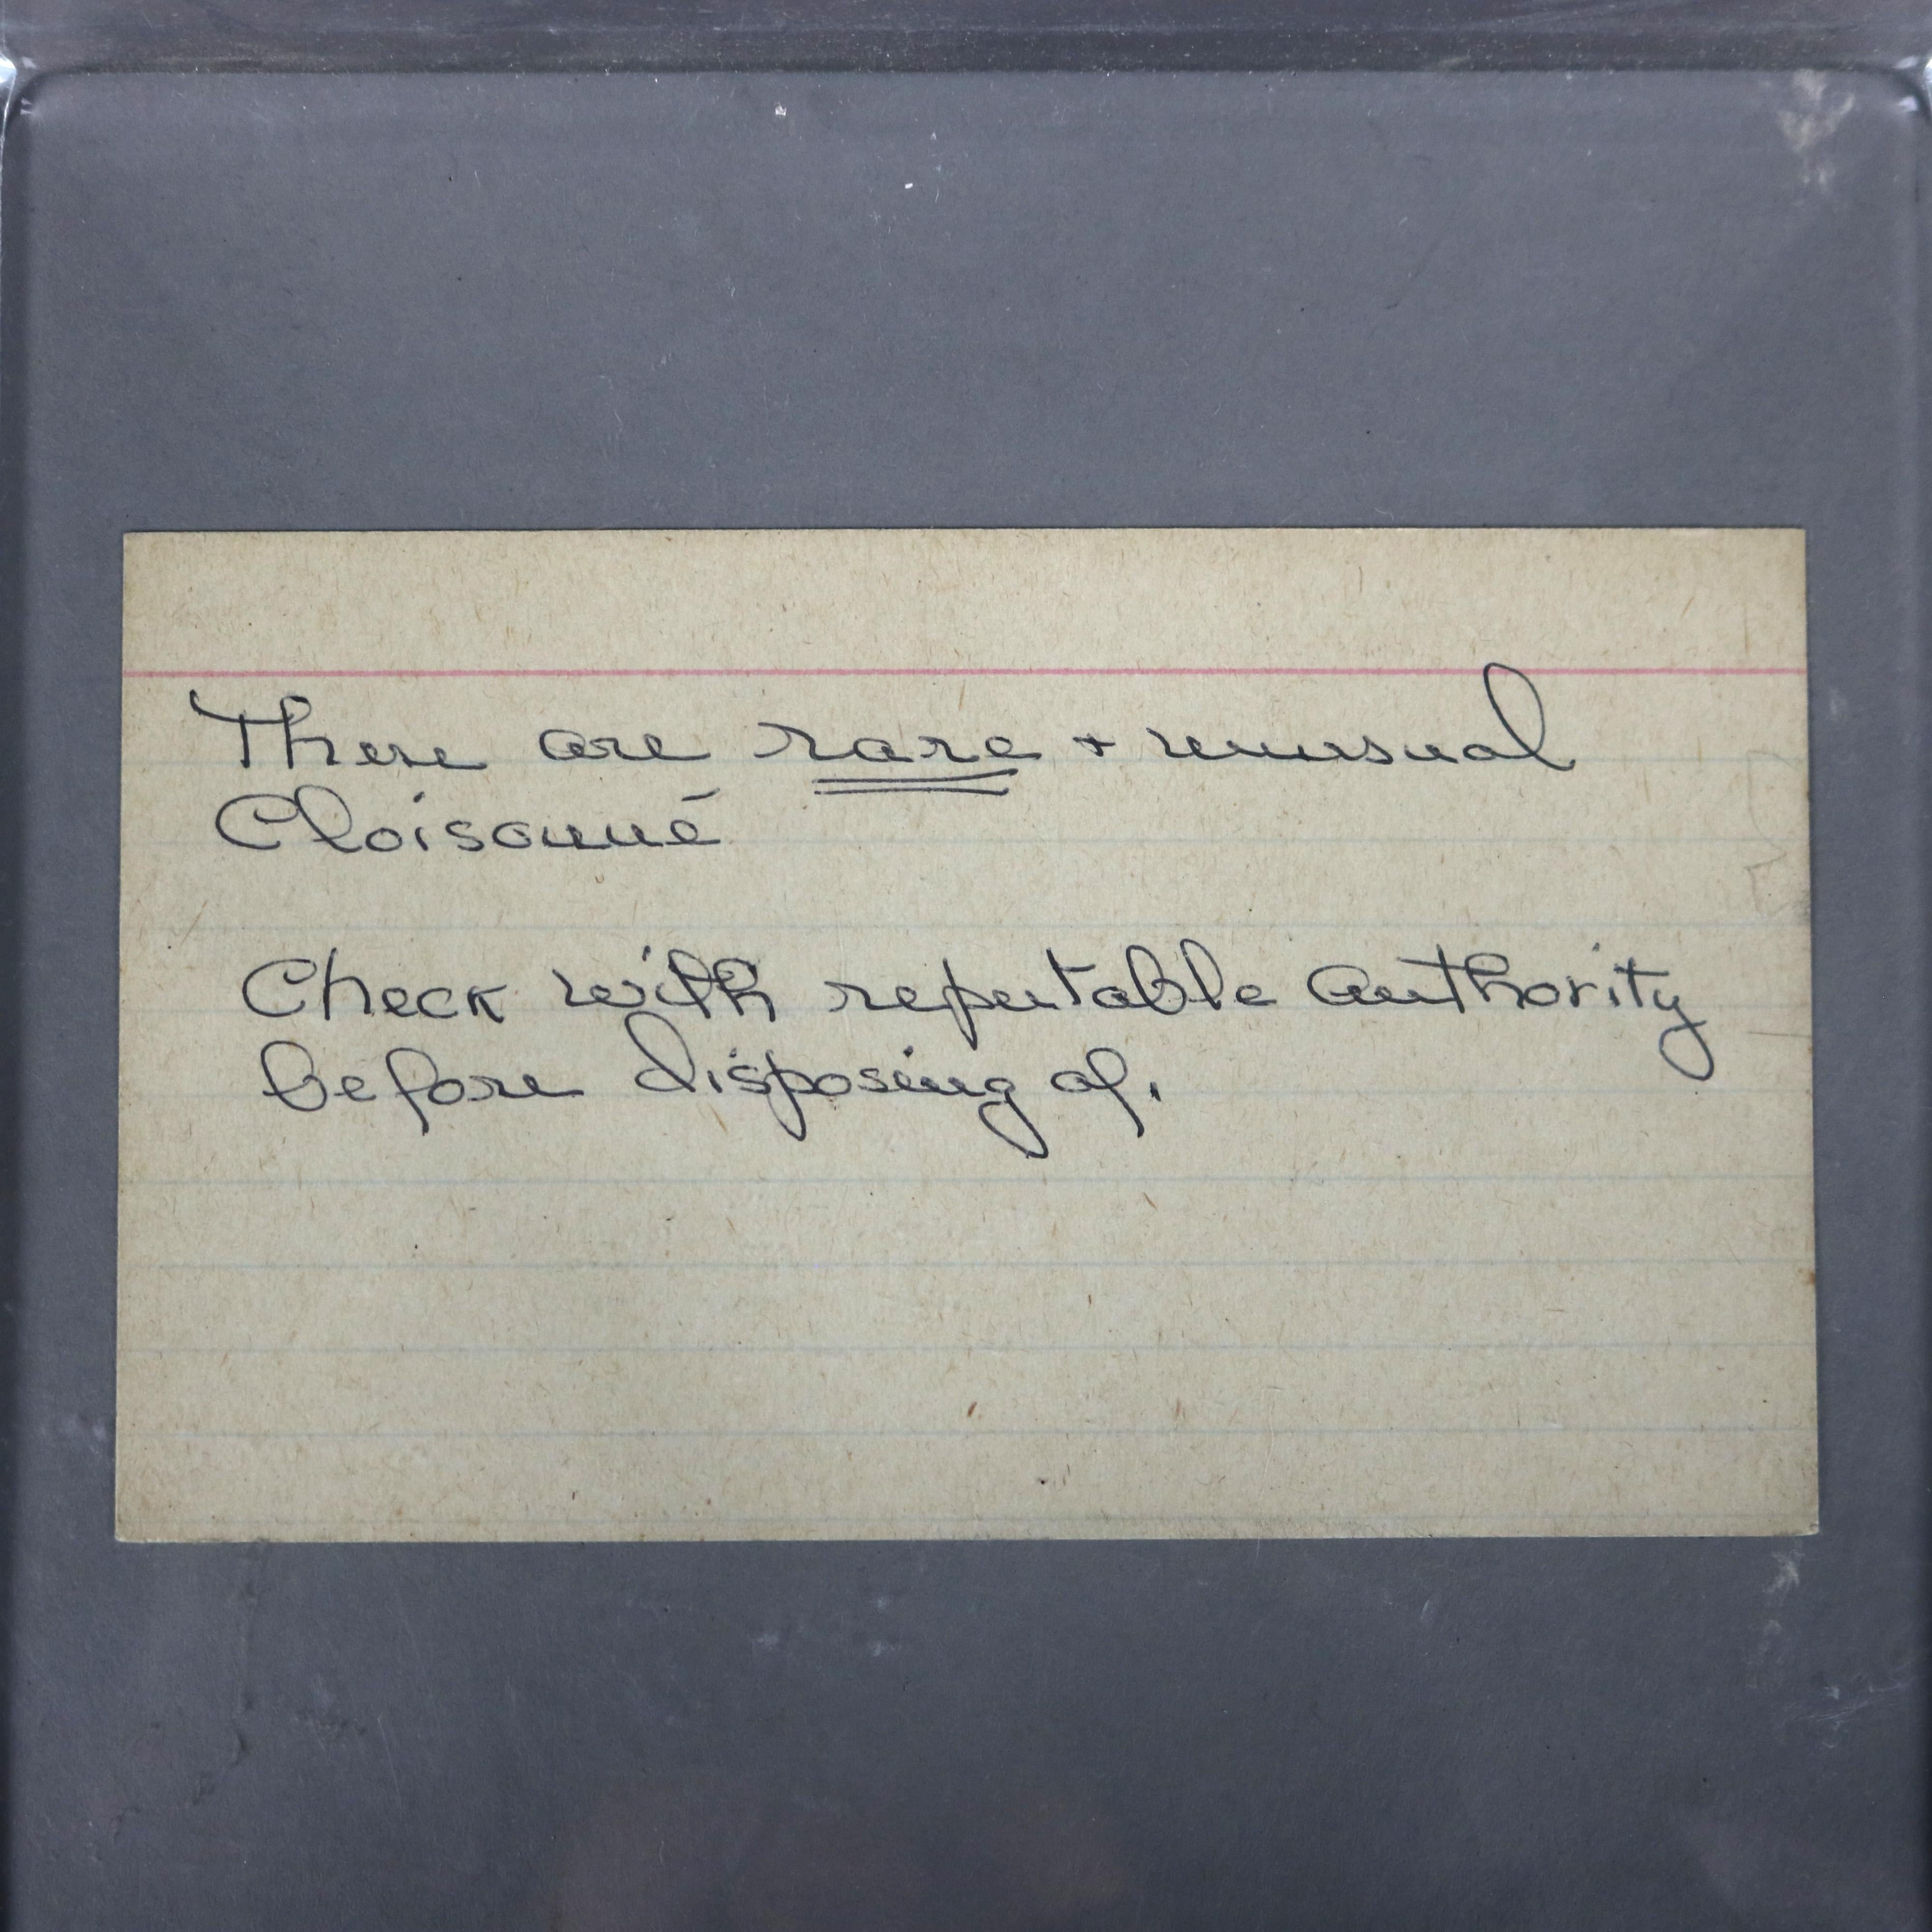 These are rare + unusual
Cloisonné
Check with reputable authority
before disposing of.